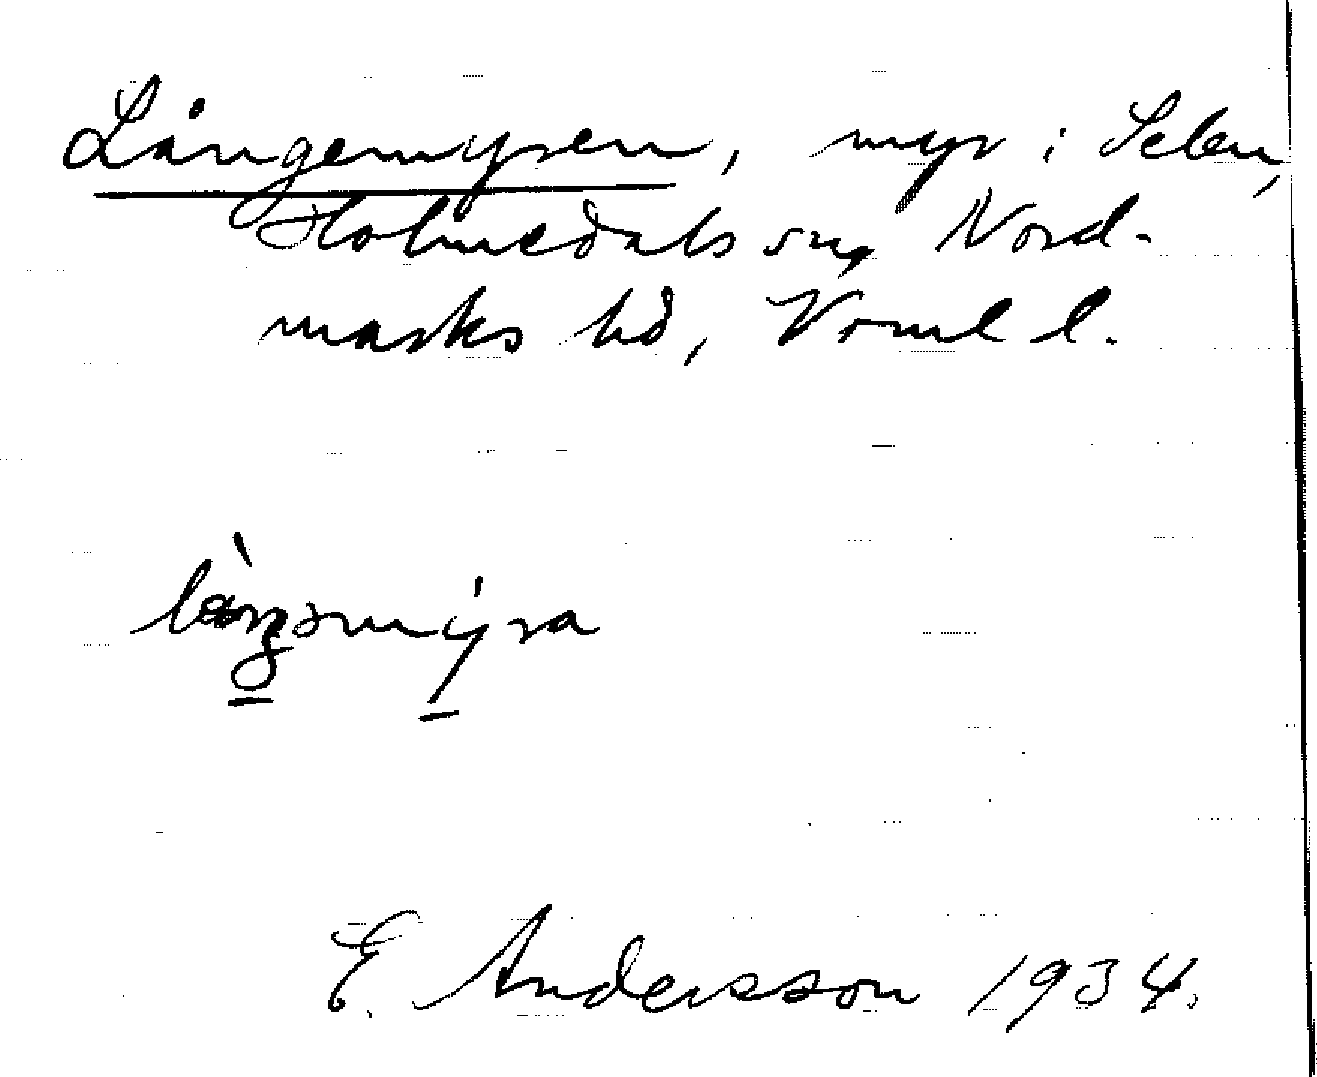 Långemyren, myr i Selen,
Holmedals sn, Nord-
marks hd, Vrml l.
låŋgəmýra
E. Andersson 1934.